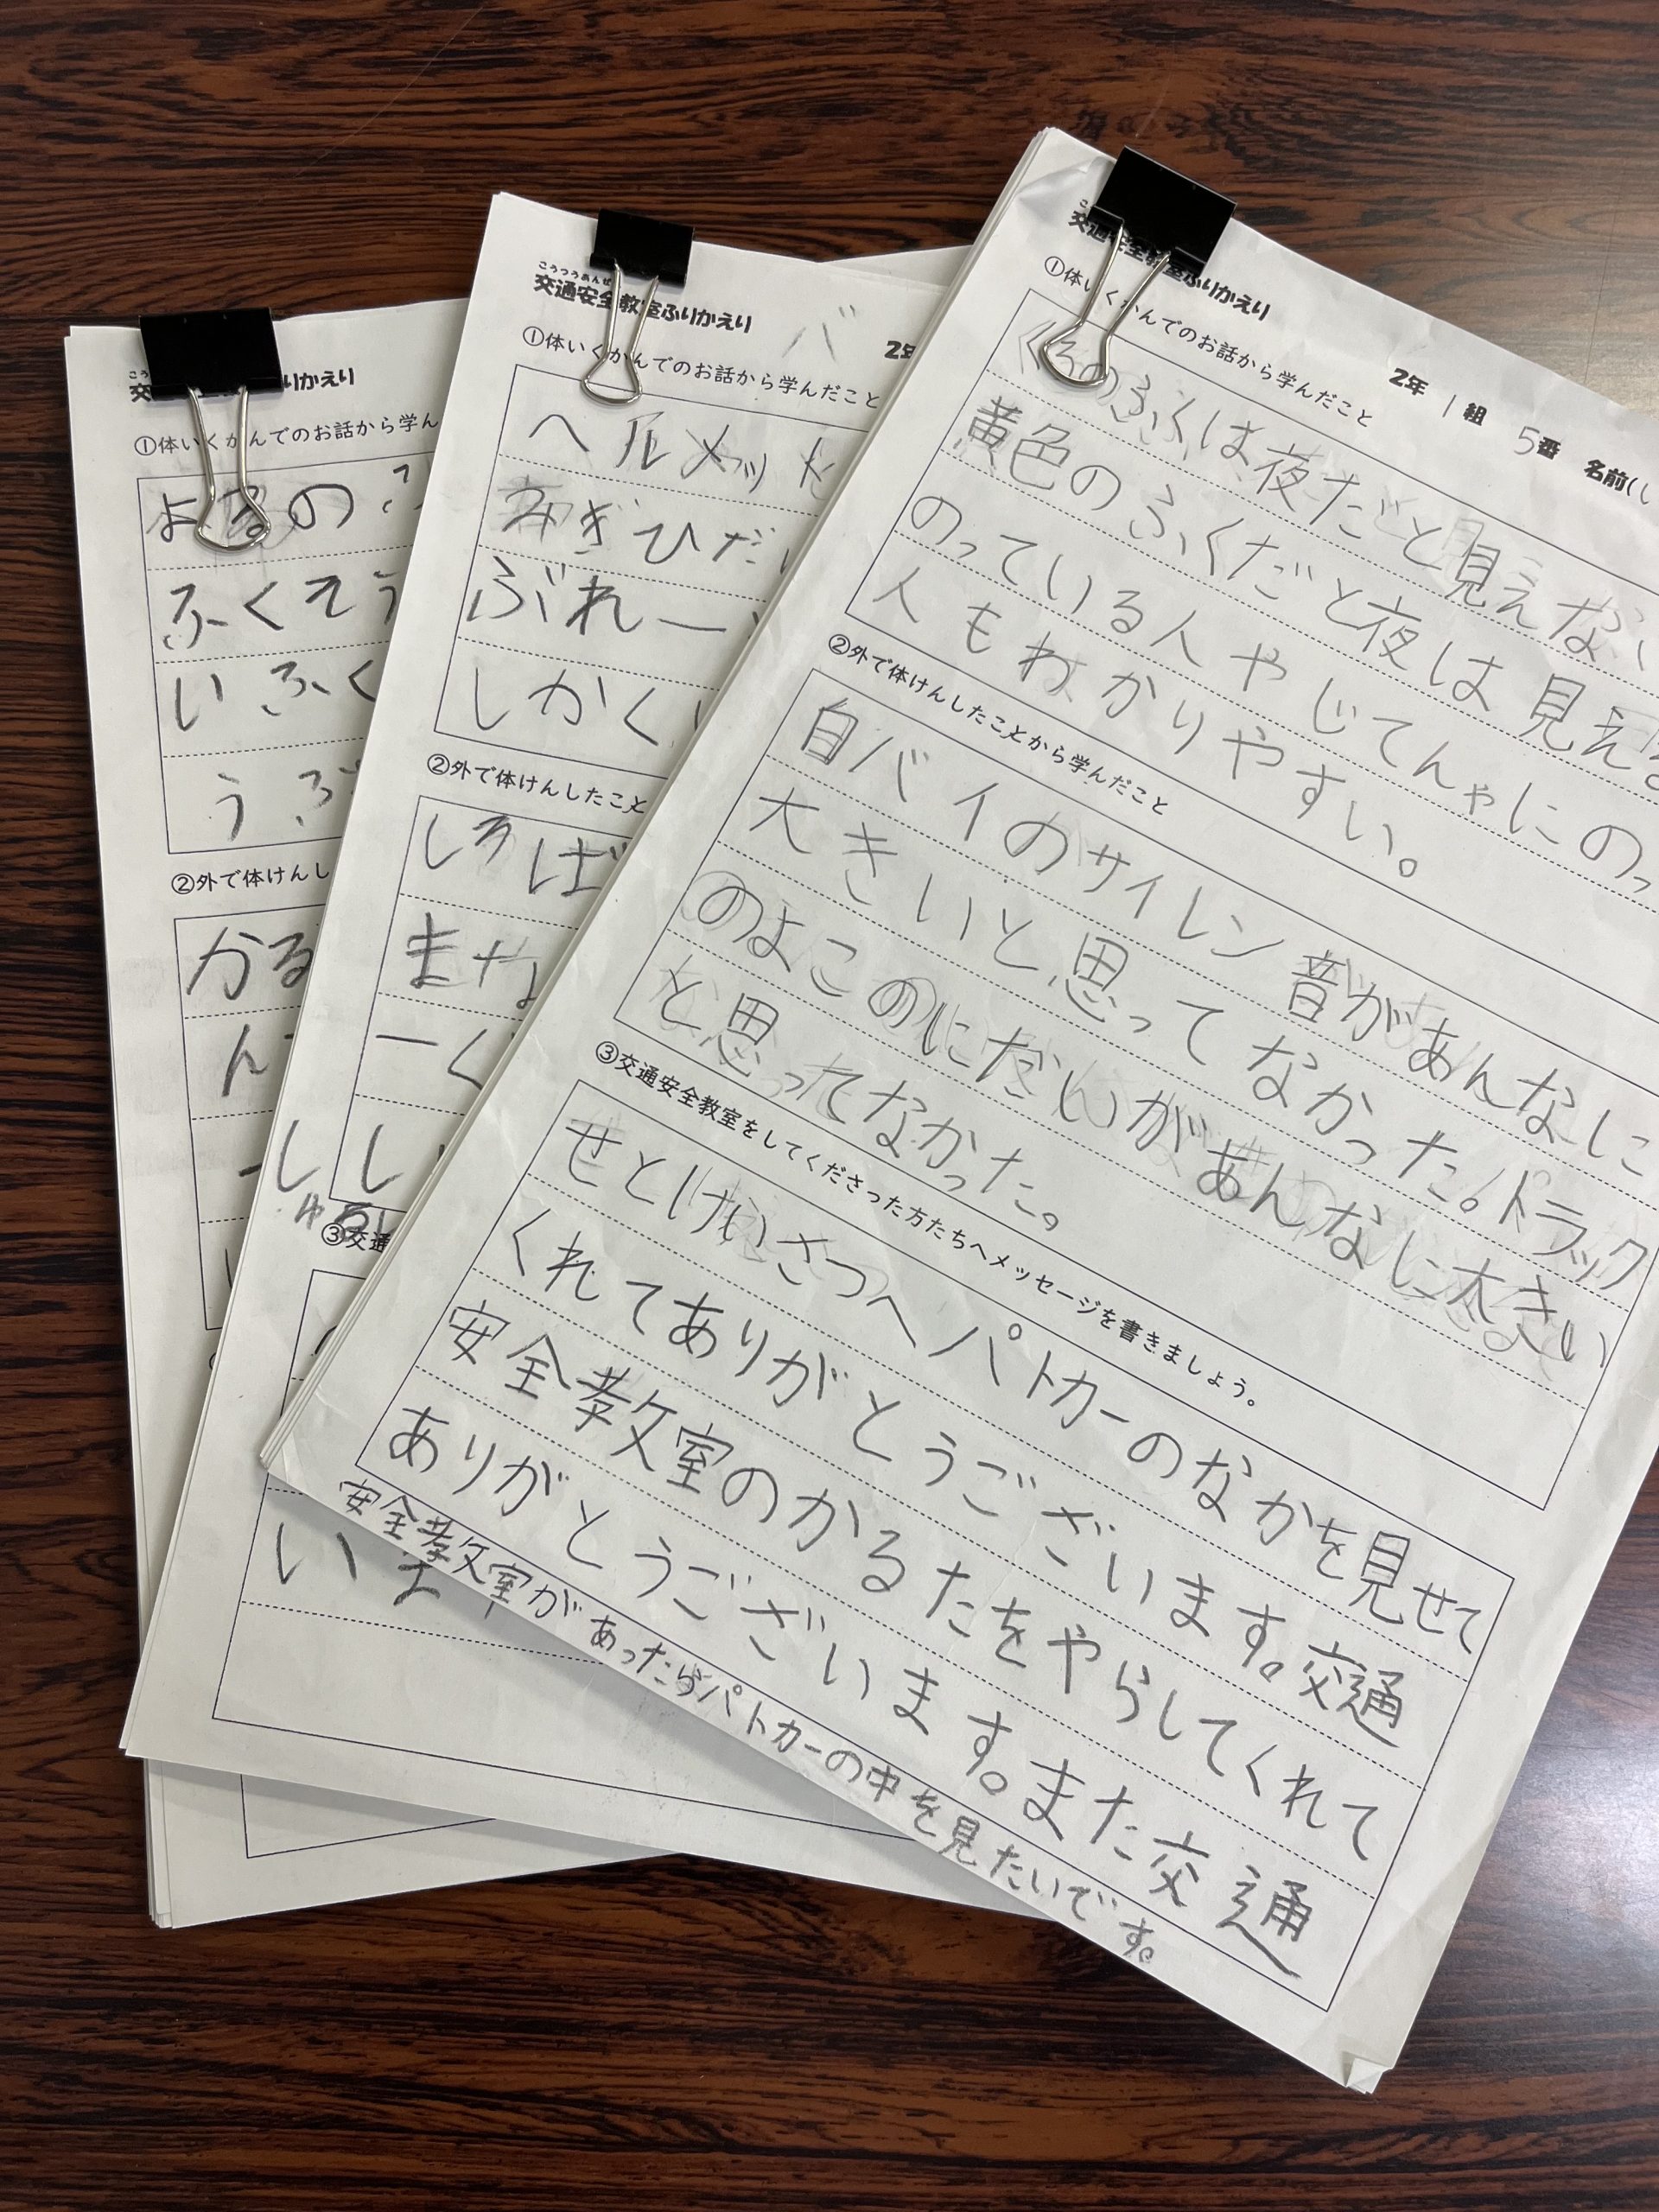 交通安全教室ふりかえり
2年 1組 5番 名前(
①体いくかんでのお話から学んだこと
くろのふくは夜だと見えない
黄色のふくだと夜は見える
のっている人やじてんゃにのっ
人もわかりやすい。
②外で体けんしたことから学んだこと
自バイのサイレン音があんなに
大きいと思ってなかった。トラック
のよこのにだいがあんなに大きい
と思ってなかった。
③交通安全教室をしてくださった方たちへメッセージを書きましょう。
せとけいさつへパトカーのなかを見せて
くれてありがとうございます。交通
安全教室のかるたをやらしてくれて
ありがとうございます。また交通
安全教室があったらパトカーの中を見たいです。
こうつうあんぜ
交通安全教室ふりかえり
2年
①体いくかんでのお話から学んだこと
ヘルメット
ひだ
ぶれー
しかく
②外で体けんしたこと
しろば
まな
ーく
し
③交通
いま
こう
交 りかえり
①体いくかんでのお話から学ん
よるの
ふくそう
いふく
う
②外で体けんし
かる
ん